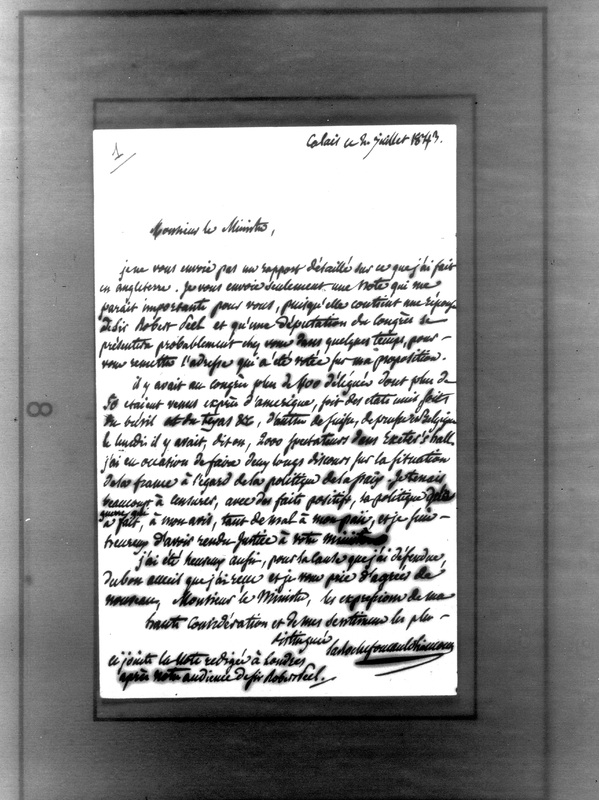 1
Calais ce 2. juillet 1843.
Monsieur le Ministre,
je ne vous envoie pas un rapport détaillé sur ce que j'ai fait
en angleterre. je vous envoie seulement une Note qui me
parait importante pour vous, puisqu'elle contient une réponse
de Sir Robert Peel et qu'une députation du Congrès se
présentera probablement chez vous dans quelques temps, pour
vous remettre l'adresse qui a été votée sur ma proposition.
il y avait au congrès plus de 400 délégués dont plus de
50 etaient venus exprès d'amerique, soit des états unis soit
du brésil et du texas &c, d'autres de suisse, de prusse et Belgique
le lundi il y avait, dit on, 2000 spectateurs dans Exeter's hall.
j'ai eu occasion de faire deux longs discours sur la situation
de la france à l'égard de la politique de la paix. je tenais
beaucoup à censurer, avec des faits positifs, la politique
guerre qui
a fait, à mon avis, tant de mal à mon païs, et je suis
heureux d'avoir rendu justice à votre ministère
j'ai été heureux aussi, pour la cause que j'ai défendue,
du bon accueil que j'ai reçu et je vous prie d'agréer de
nouveau, Monsieur le Ministre, les expressions de ma
haute Considération et de mes sentimens les plus
distingués
larochefoucauld liancourt
ci jointe la Note redigée à Londres
après notre audience de Sir Robert Peel.
8